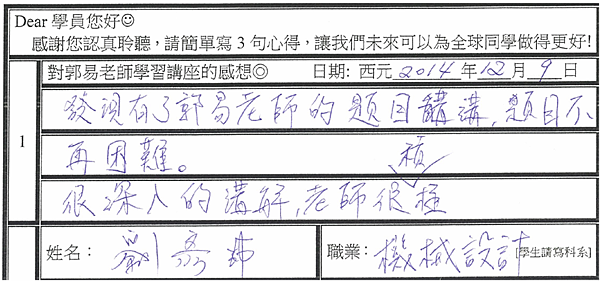 Dear 學員您好☺
感謝您認真聆聽，請簡單寫 3 句心得，讓我們未來可以為全球同學做得更好!
對郭易老師學習講座的感想◎ 日期: 西元 2014 年 12 月 9 日
1
發現有了郭易老師的題目講, 題目不
再困難。
很深入的講解, 老師很積極
姓名： 劉 職業： 機械設計 [學生請寫科系]